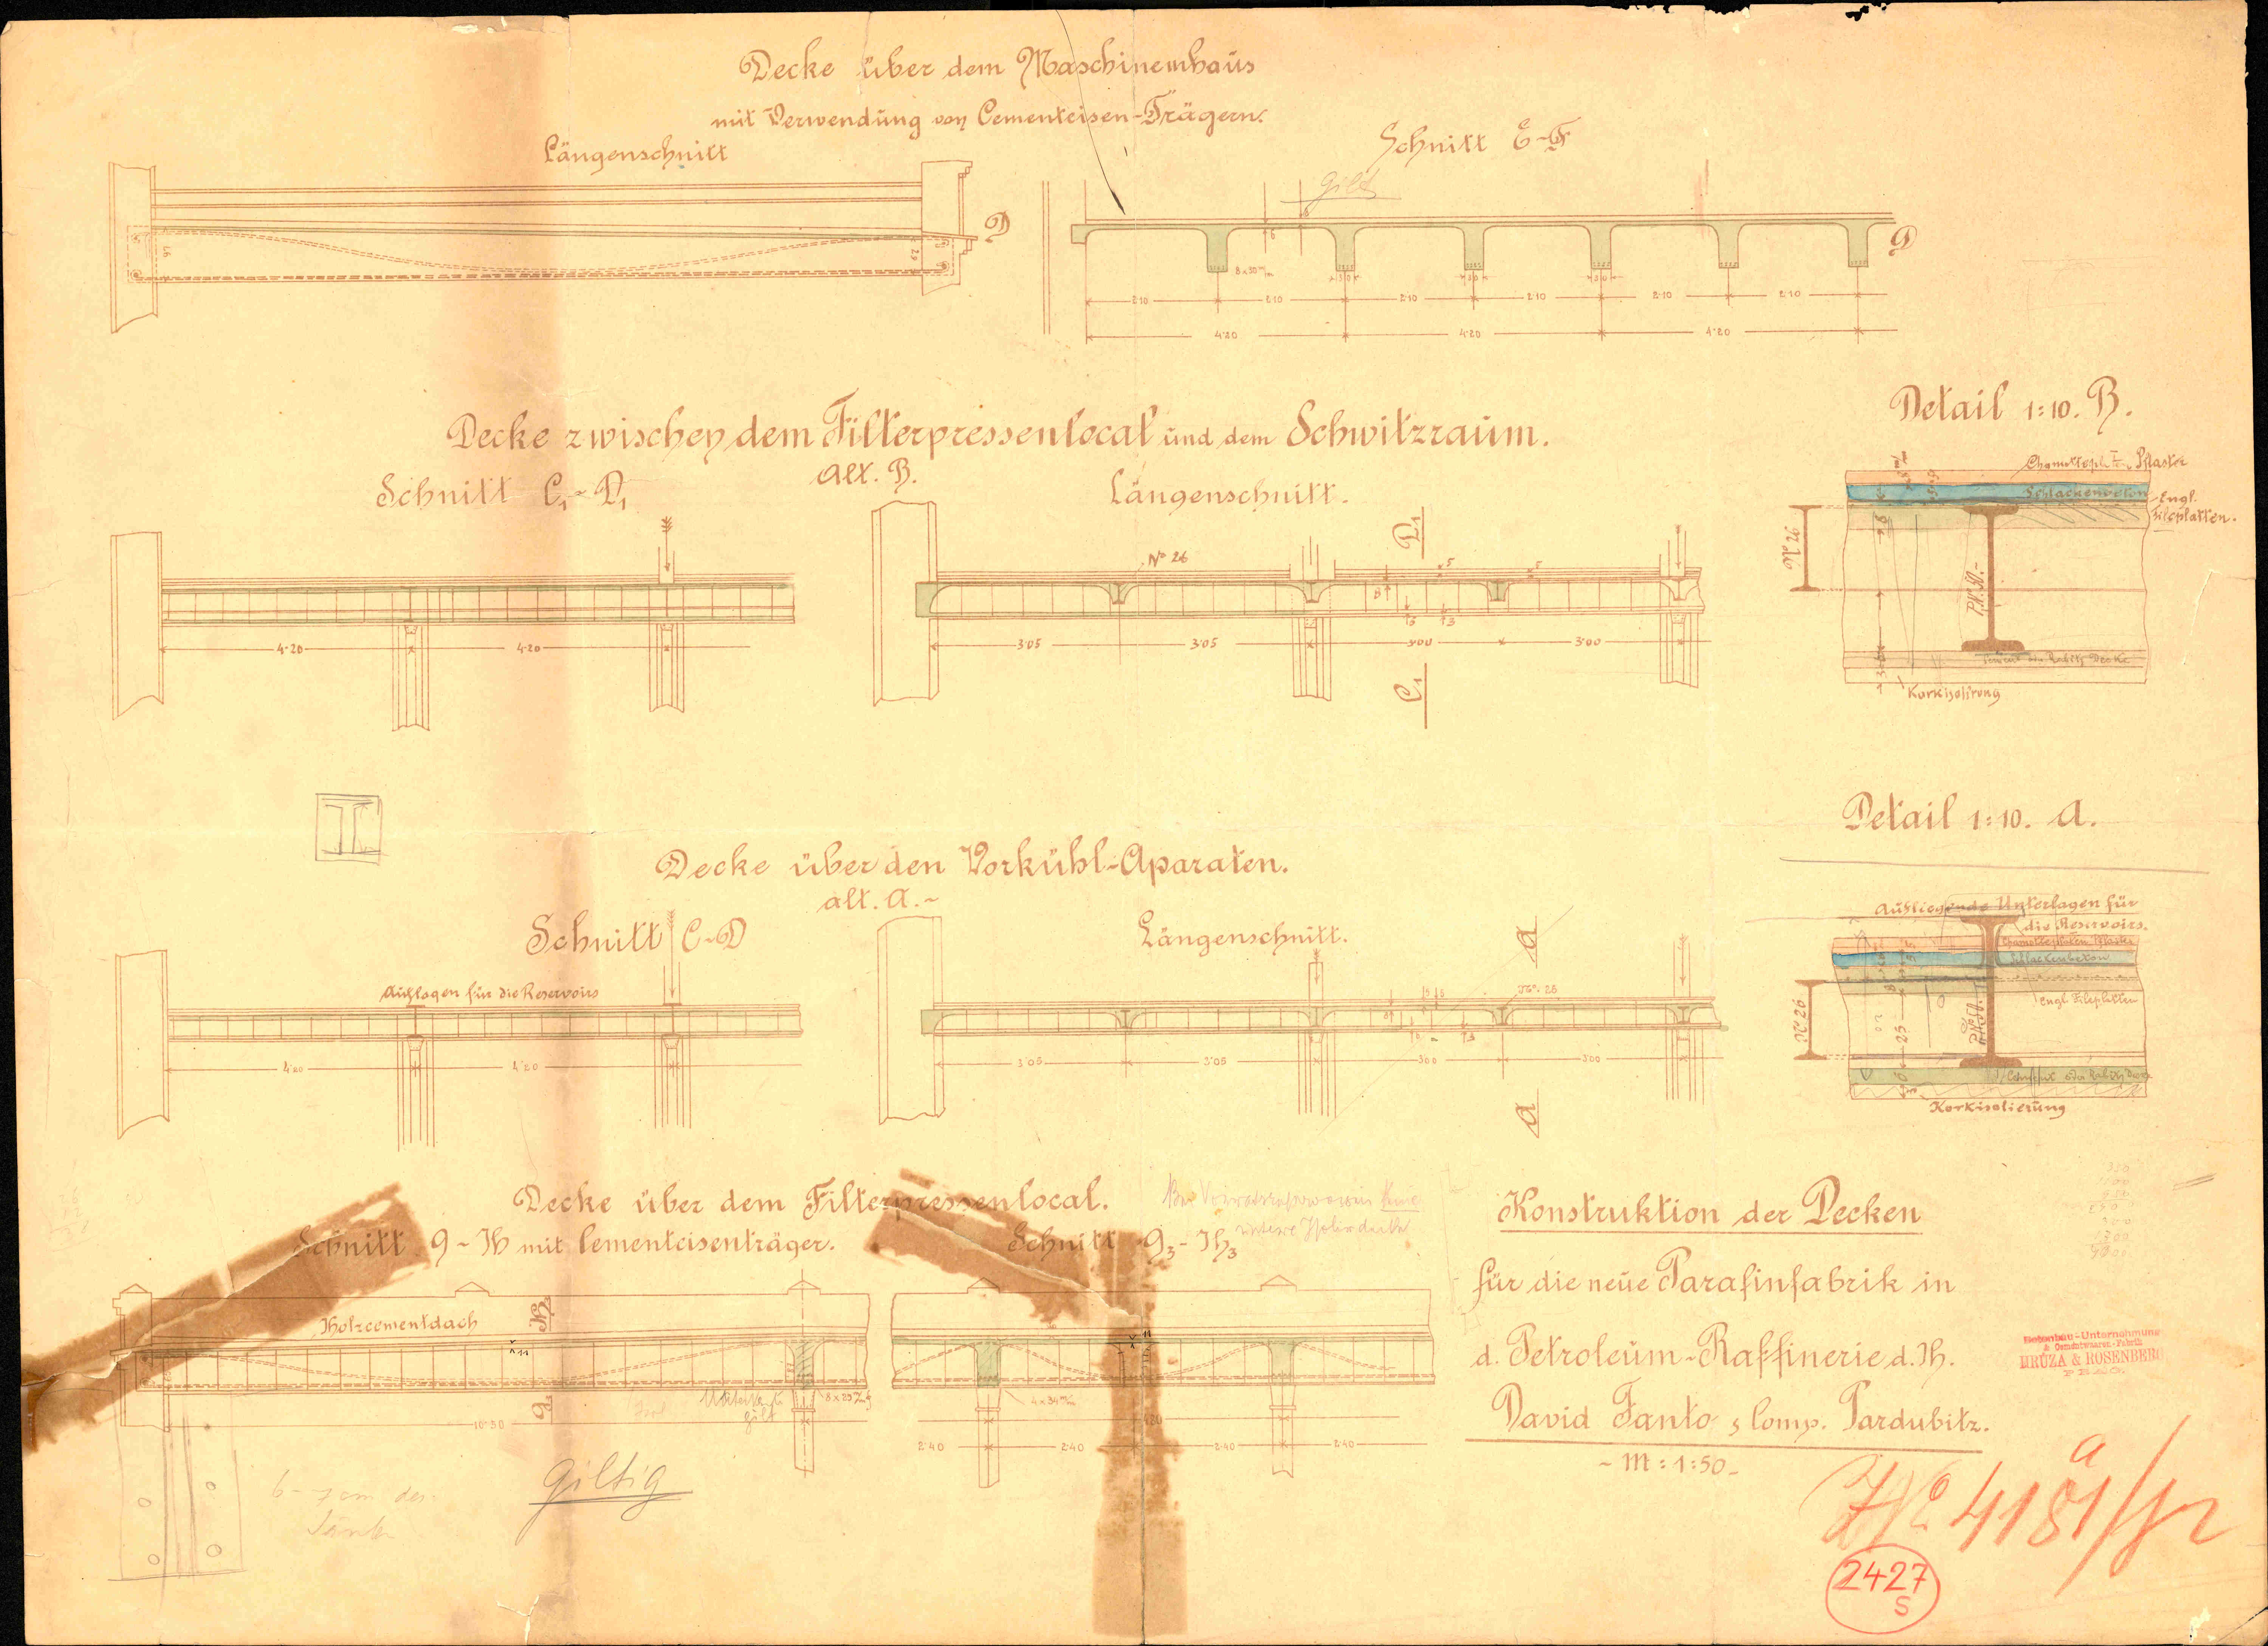 Decke über dem Maschinenhaus
mit Verwendung von Cementeisen-Trägern.
Längenschnitt
Schnitt E-F
gilt
D
D
6
8 x 30 m/m
30
30
30
30
2·10
2·10
2·10
2·10
2·10
2·10
4·20
4·20
4·20
Decke zwischen dem Filterpressenlocal und dem Schwitzraum.
Alt. B.
Schnitt C₁-D₁
Längenschnitt.
D₁
No 26
5
5
8
3
4·20
4·20
3·05
3·05
3·00
3·00
C₁
Detail 1:10. B.
Pflaster
Schlackenbeton
Engl.
Fileplatten.
No 26
P.N. 50.-
Korkisolirung
Decke über den Vorkühl-Aparaten.
alt. A.~
Schnitt C-D
Längenschnitt.
a
Auflagen für die Reservoirs
No. 26
4·20
4·20
3·05
3·05
3·00
3·00
a
Detail 1:10. A.
Aufliegende Unterlagen für
die Reservoirs.
Chamotteplatten Pflaster
Schlackenbeton
Engl. Fileplatten
No 26
25
Korkisolierung
Decke über dem Filterpressenlocal.
Schnitt G-H mit Cementeisenträger.
Schnitt G₃-H₃
Holzcementdach
H
G
8 x 29
4 x 34 m/m
gilt
10·30
2·40
2·40
2·40
2·40
6-7 cm
giltig
Konstruktion der Decken
für die neue Parafinfabrik in
d. Petroleum-Raffinerie d. H.
David Fanto & Comp. Pardubitz.
- M: 1:50 -
Betonbau-Unternehmung
& Cementwaren-Fabrik
HRŮZA & ROSENBERG
PRAG.
No 4181
a
2427
S